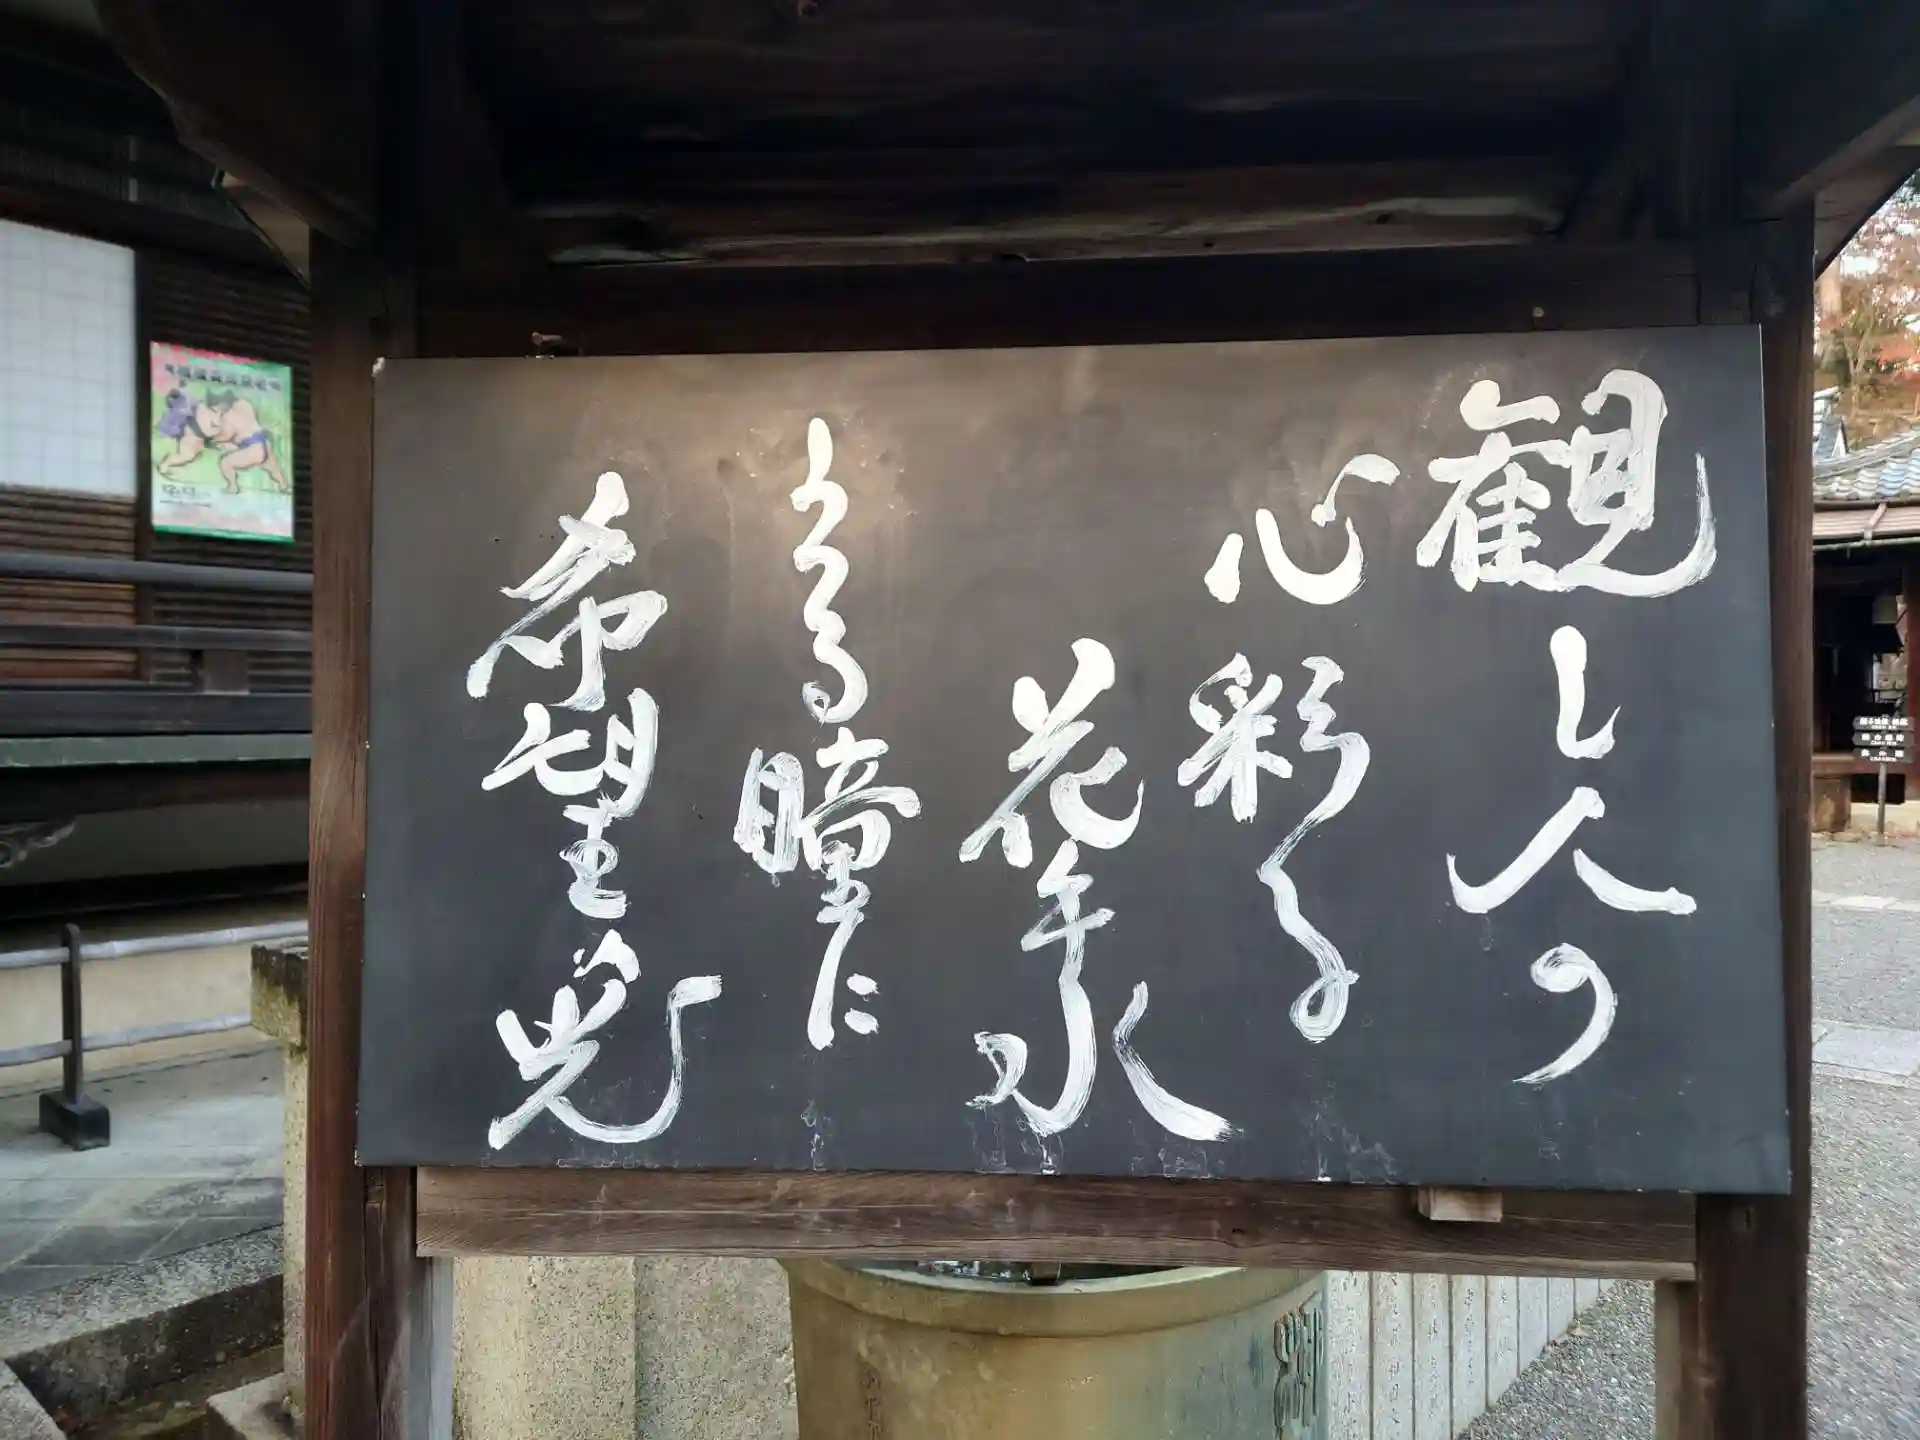 観し人の
心彩る
花手水
うつる瞳に
希望の光